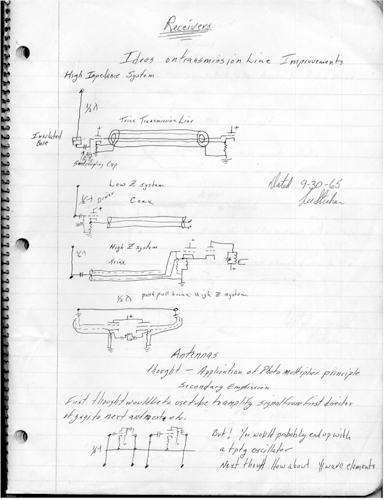 Receivers
Ideas on transmission Line Improvements
High Impedance System
1/2 λ
Triax Transmission Line
Insulated
Base
Small Coupling Cap
Dated 9-30-65
Low Z system
1/4 λ Driven
Coax
High Z system
Triax
1/2 λ push pull triax High Z system
Antennas
thought - Application of Photo multiplier principle
Secondary Emission
First thought would be to use tube to amplify signal from first director
of yagi to next antenna etc.
But! You would probably end up with
a tptg oscillator
Next though How about 1/4 wave elements
1/4 λ